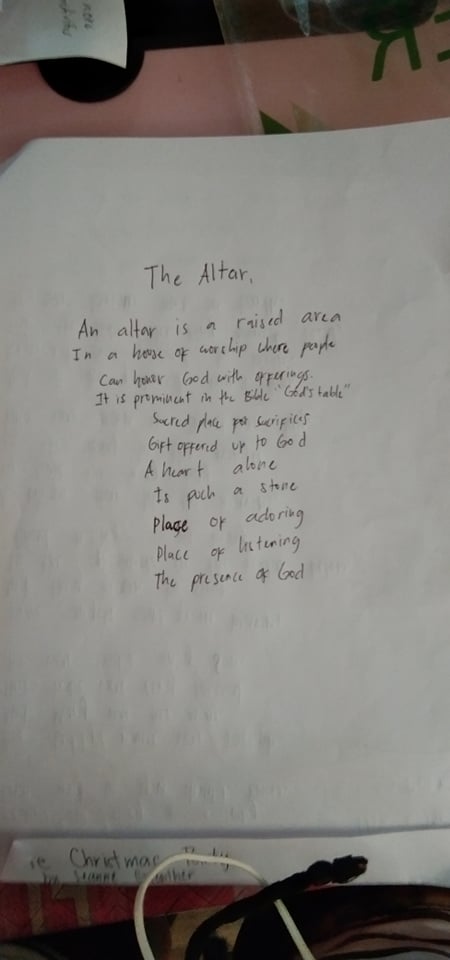 The Altar.
An altar is a raised area
In a house of worship where people
Can honor God with offerings.
It is prominent in the Bible "God's table"
Sacred place for sacrifices
Gift offered up to God
A heart alone
Is such a stone
Place of adoring
Place of listening
The presence of God
Christmas
by Jeanne